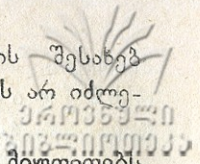 ის შესახებ
ს არ იძლე-
ეროვნული
ბიბლიოთეკა